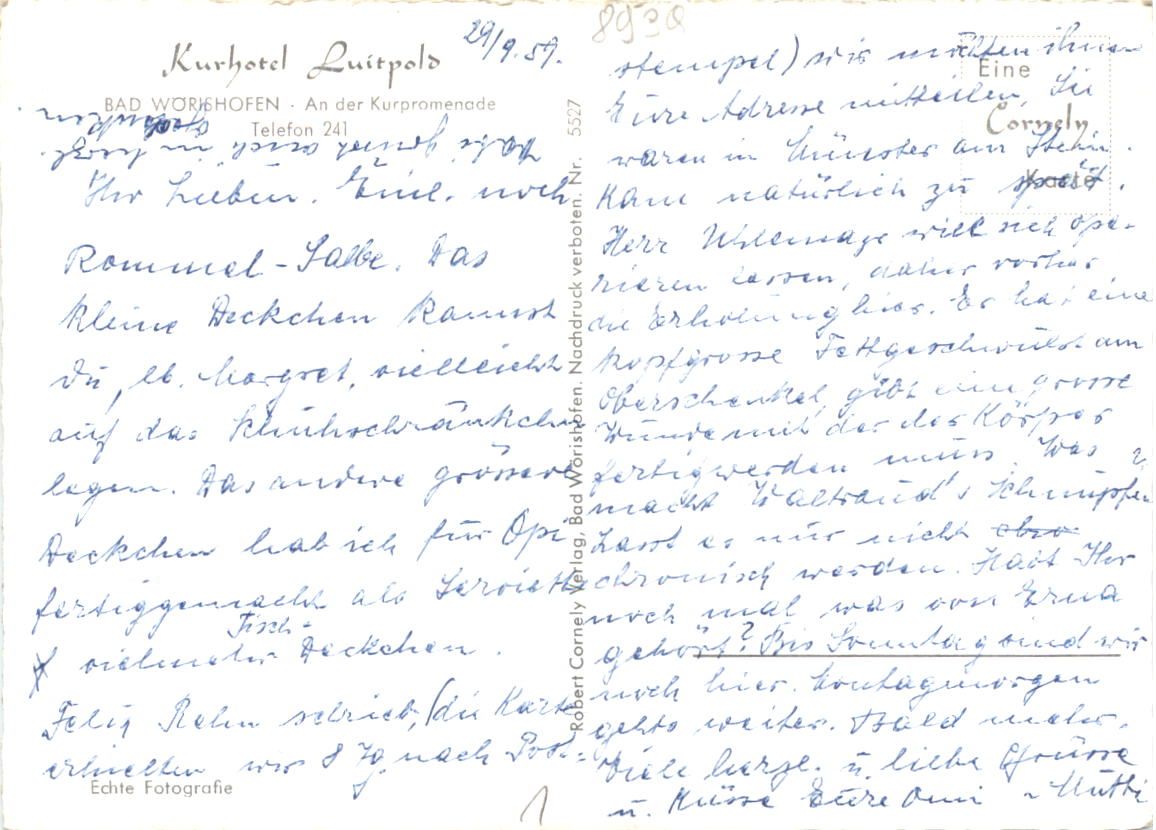 8930
29/9.59.
Kurhotel Luitpold
BAD WÖRISHOFEN · An der Kurpromenade
Telefon 241
Ihr Lieben. Einl. noch
Rommel-Salbe. Das
kleine Deckchen kannst
Du, lb. Margret, vielleicht
auf das Schuhschränkchen
legen. Das andere grössere
Deckchen hab ich für Opi
fertiggemacht als Serviette
Tisch-
vielmehr Deckchen.
Felix Rehn schrieb, (die Karte
erhielten wir 8 Tg. nach Post-
Echte Fotografie
1
Robert Cornely Verlag, Bad Wörishofen. Nachdruck verboten. Nr. 5527
Eine
Cornely
Karte
stempel) wir möchten ihnen
Eure Adresse mitteilen, Sie
waren in Münster am
Kam natürlich zu spät.
Herr will sich ope-
rieren lassen, daher vorher
die Erholung hier. Er hat eine
kopfgrosse Fettgeschwulst am
Oberschenkel, gibt eine grosse
Wunde mit der der Körper
fertigwerden muss. Was
macht Waltraud's Schnupfen
Lasst es nur nicht
chronisch werden. Habt Ihr
noch mal was von Erna
gehört? Bis Sonntag sind wir
noch hier. Montagmorgen
gehts weiter. Bald mehr.
Viele herzl. u. liebe Grüsse
u. Küsse Eure Omi - Mutti